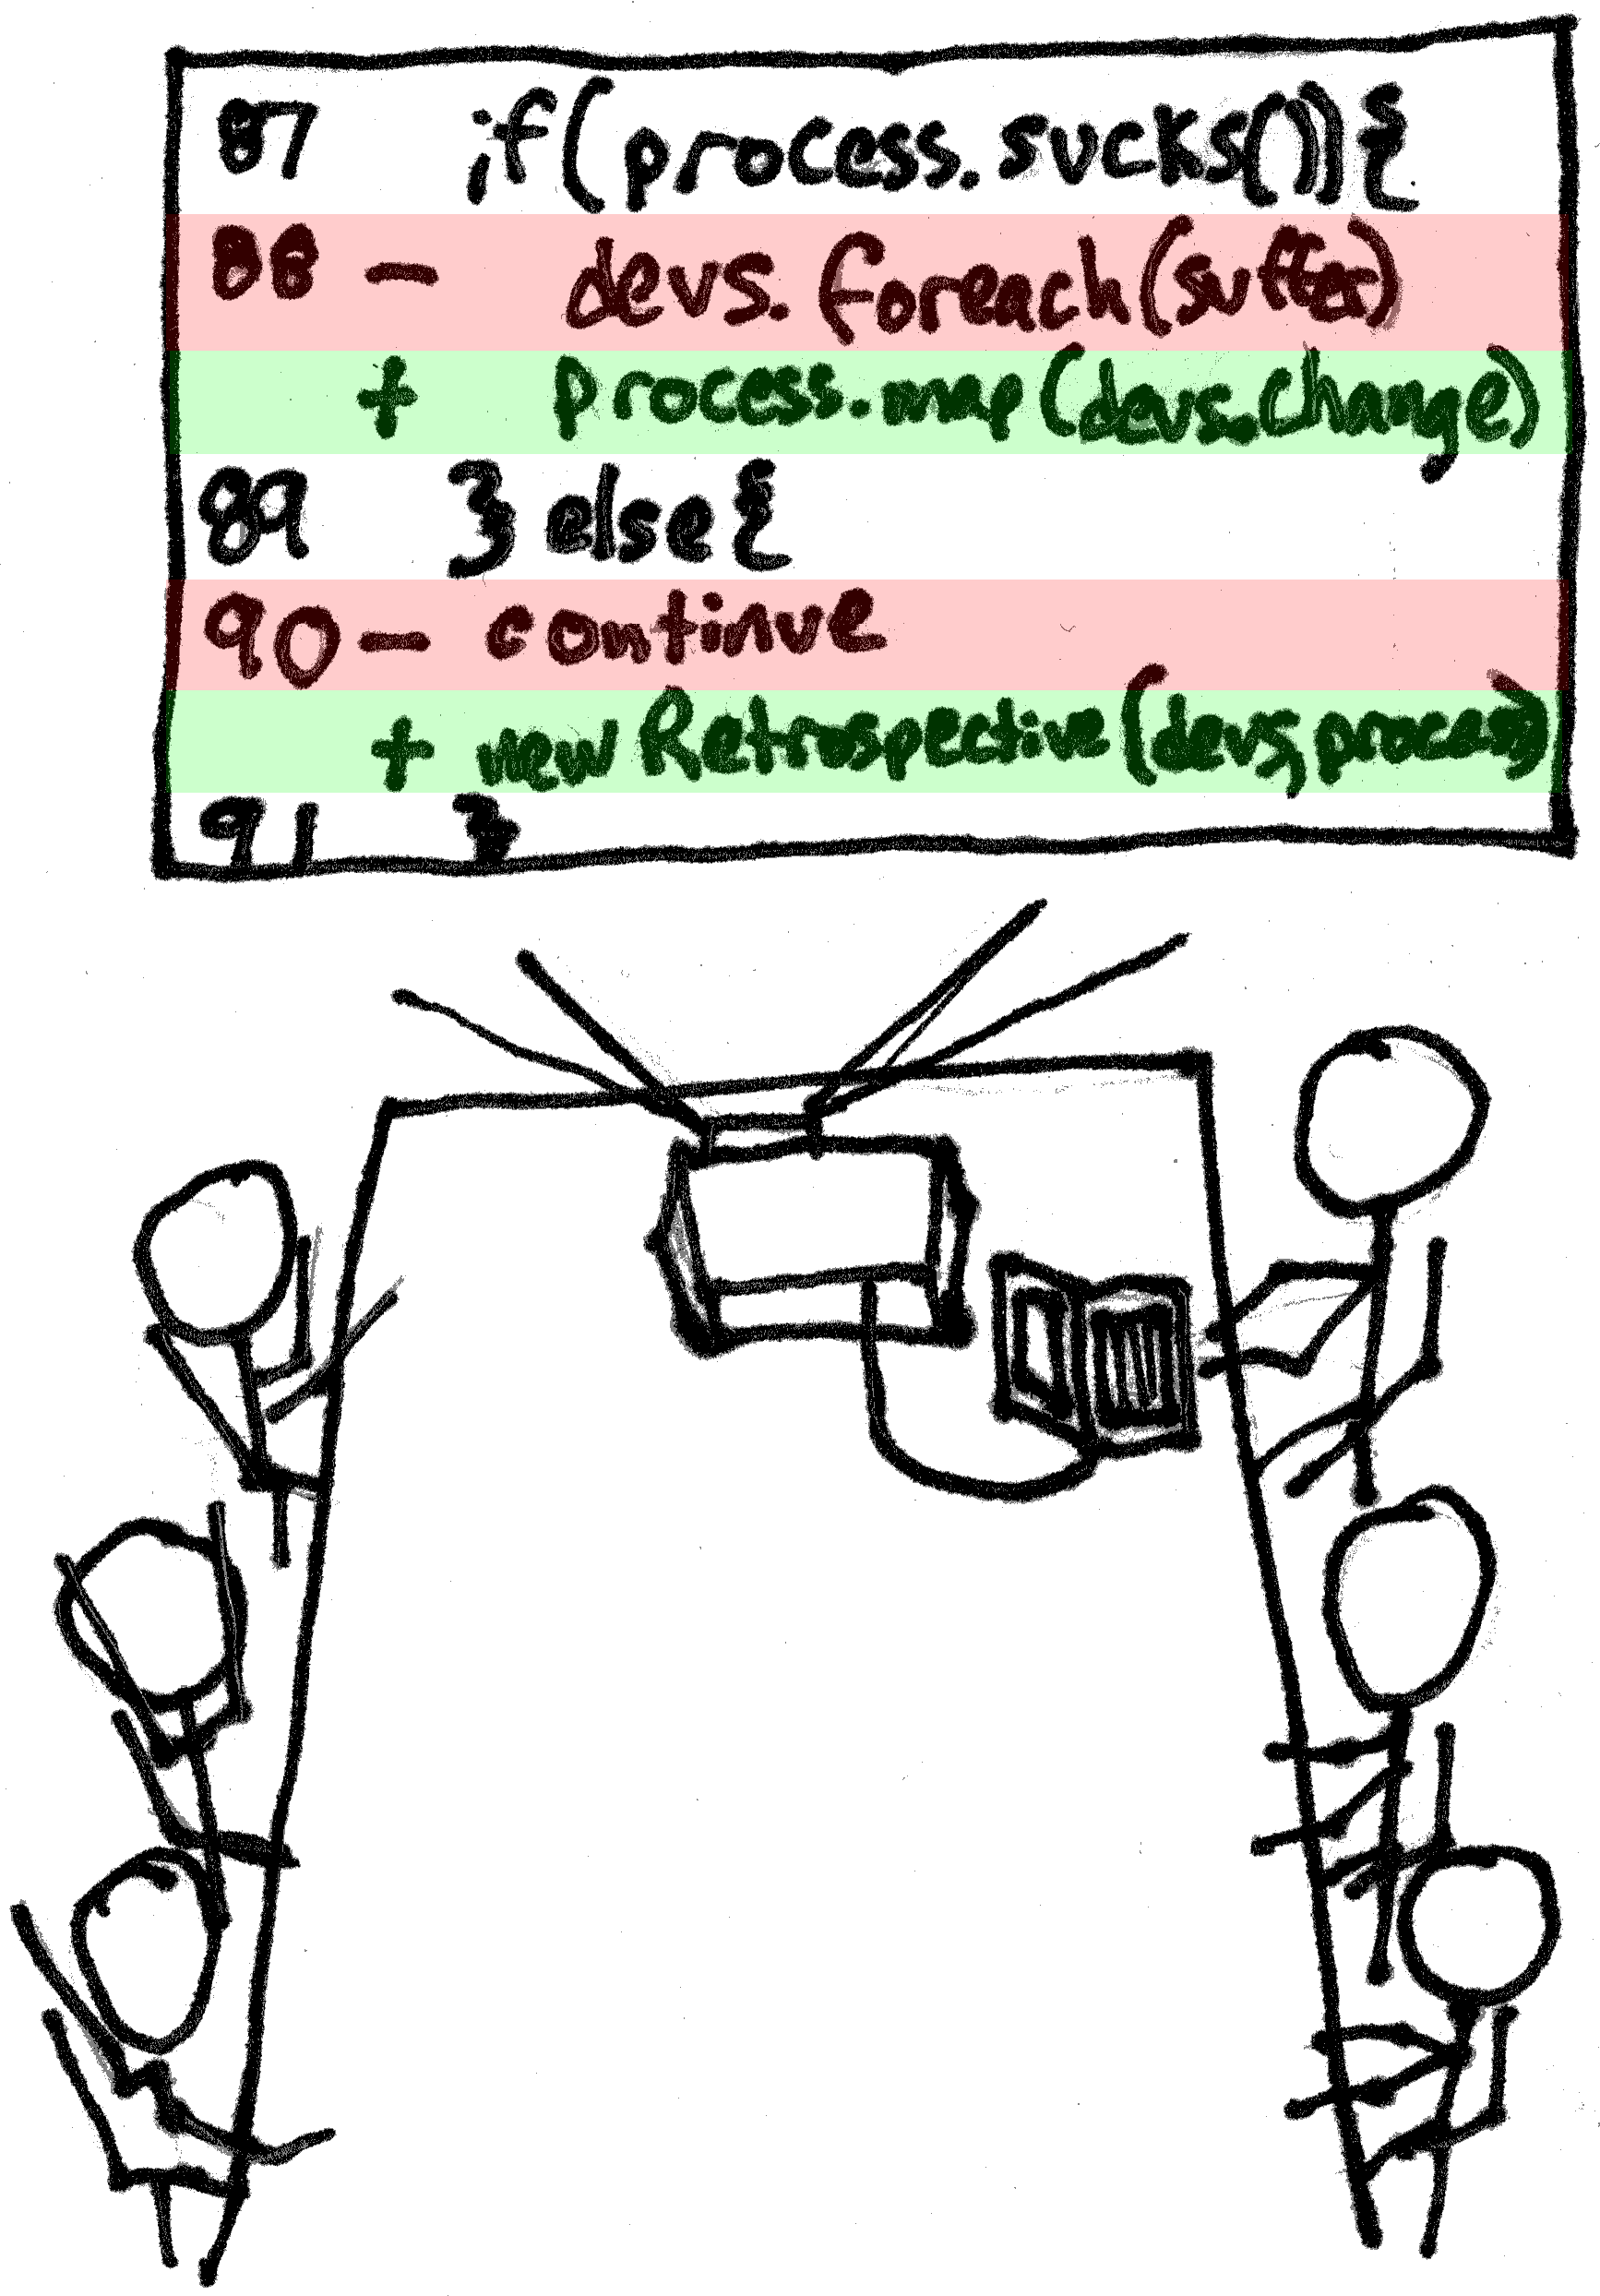 87 if(process.sucks()){
88 - devs.foreach(suffer)
+ process.map(devs.change)
89 } else {
90 - continue
+ new Retrospective(devs, process)
91 }